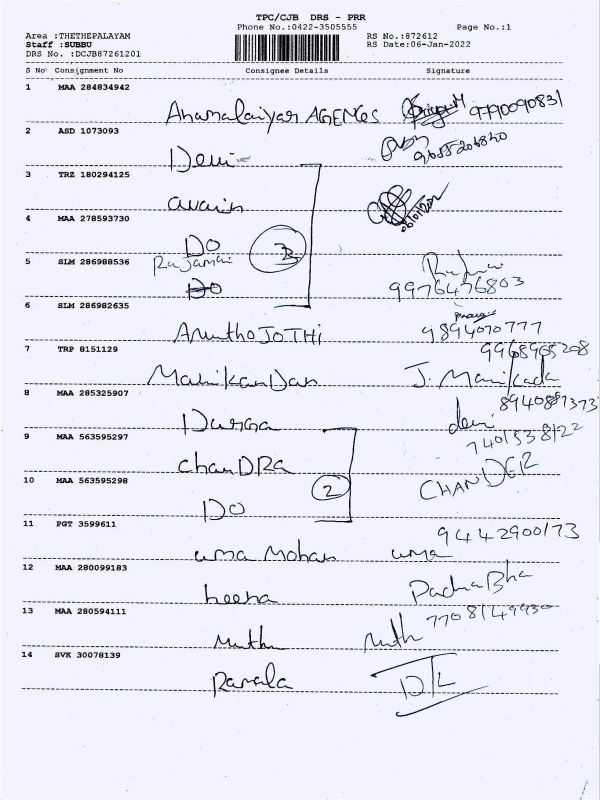 TPC/CJB DRS - PRR
Phone No.:0422-3505555
Page No.:1
Area :THETHEPALAYAM
RS No.:872612
Staff :SUBBU
RS Date:06-Jan-2022
DRS No. :DCJB87261201
S No Consignment No Consignee Details Signature
1 MAA 284834942
Anamalaiyar AGENCES 9790090831
2 ASD 1073093
Devi
3 TRZ 180294125
4 MAA 278593730
DO 3
5 SLM 286988536
Rajamani
DO 9976476803
6 SLM 286982635
ArunthoJOTHI 9894070777
7 TRP 8151129
9968965208
ManikanDan J. Manikada
8 MAA 285325907
Durga devi
9 MAA 563595297
7401538122
chanDRA
10 MAA 563595298
CHANDER
DO 2
11 PGT 3599611
9442900173
uma Mohan uma
12 MAA 280099183
heena PadnaBha
13 MAA 280594111
Muthu Muth
14 SVK 30078139
Ramala